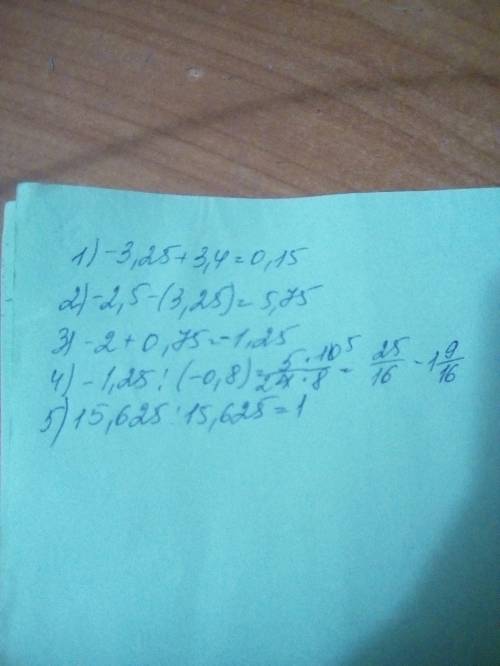 1) -3,25+3,4=0,15
2) -2,5-(3,25)=5,75
3) -2+0,75=-1,25
4) -1,25:(-0,8)= 5·10⁵/2 4·8 = 25/16 - 1 9/16
5) 15,625:15,625=1